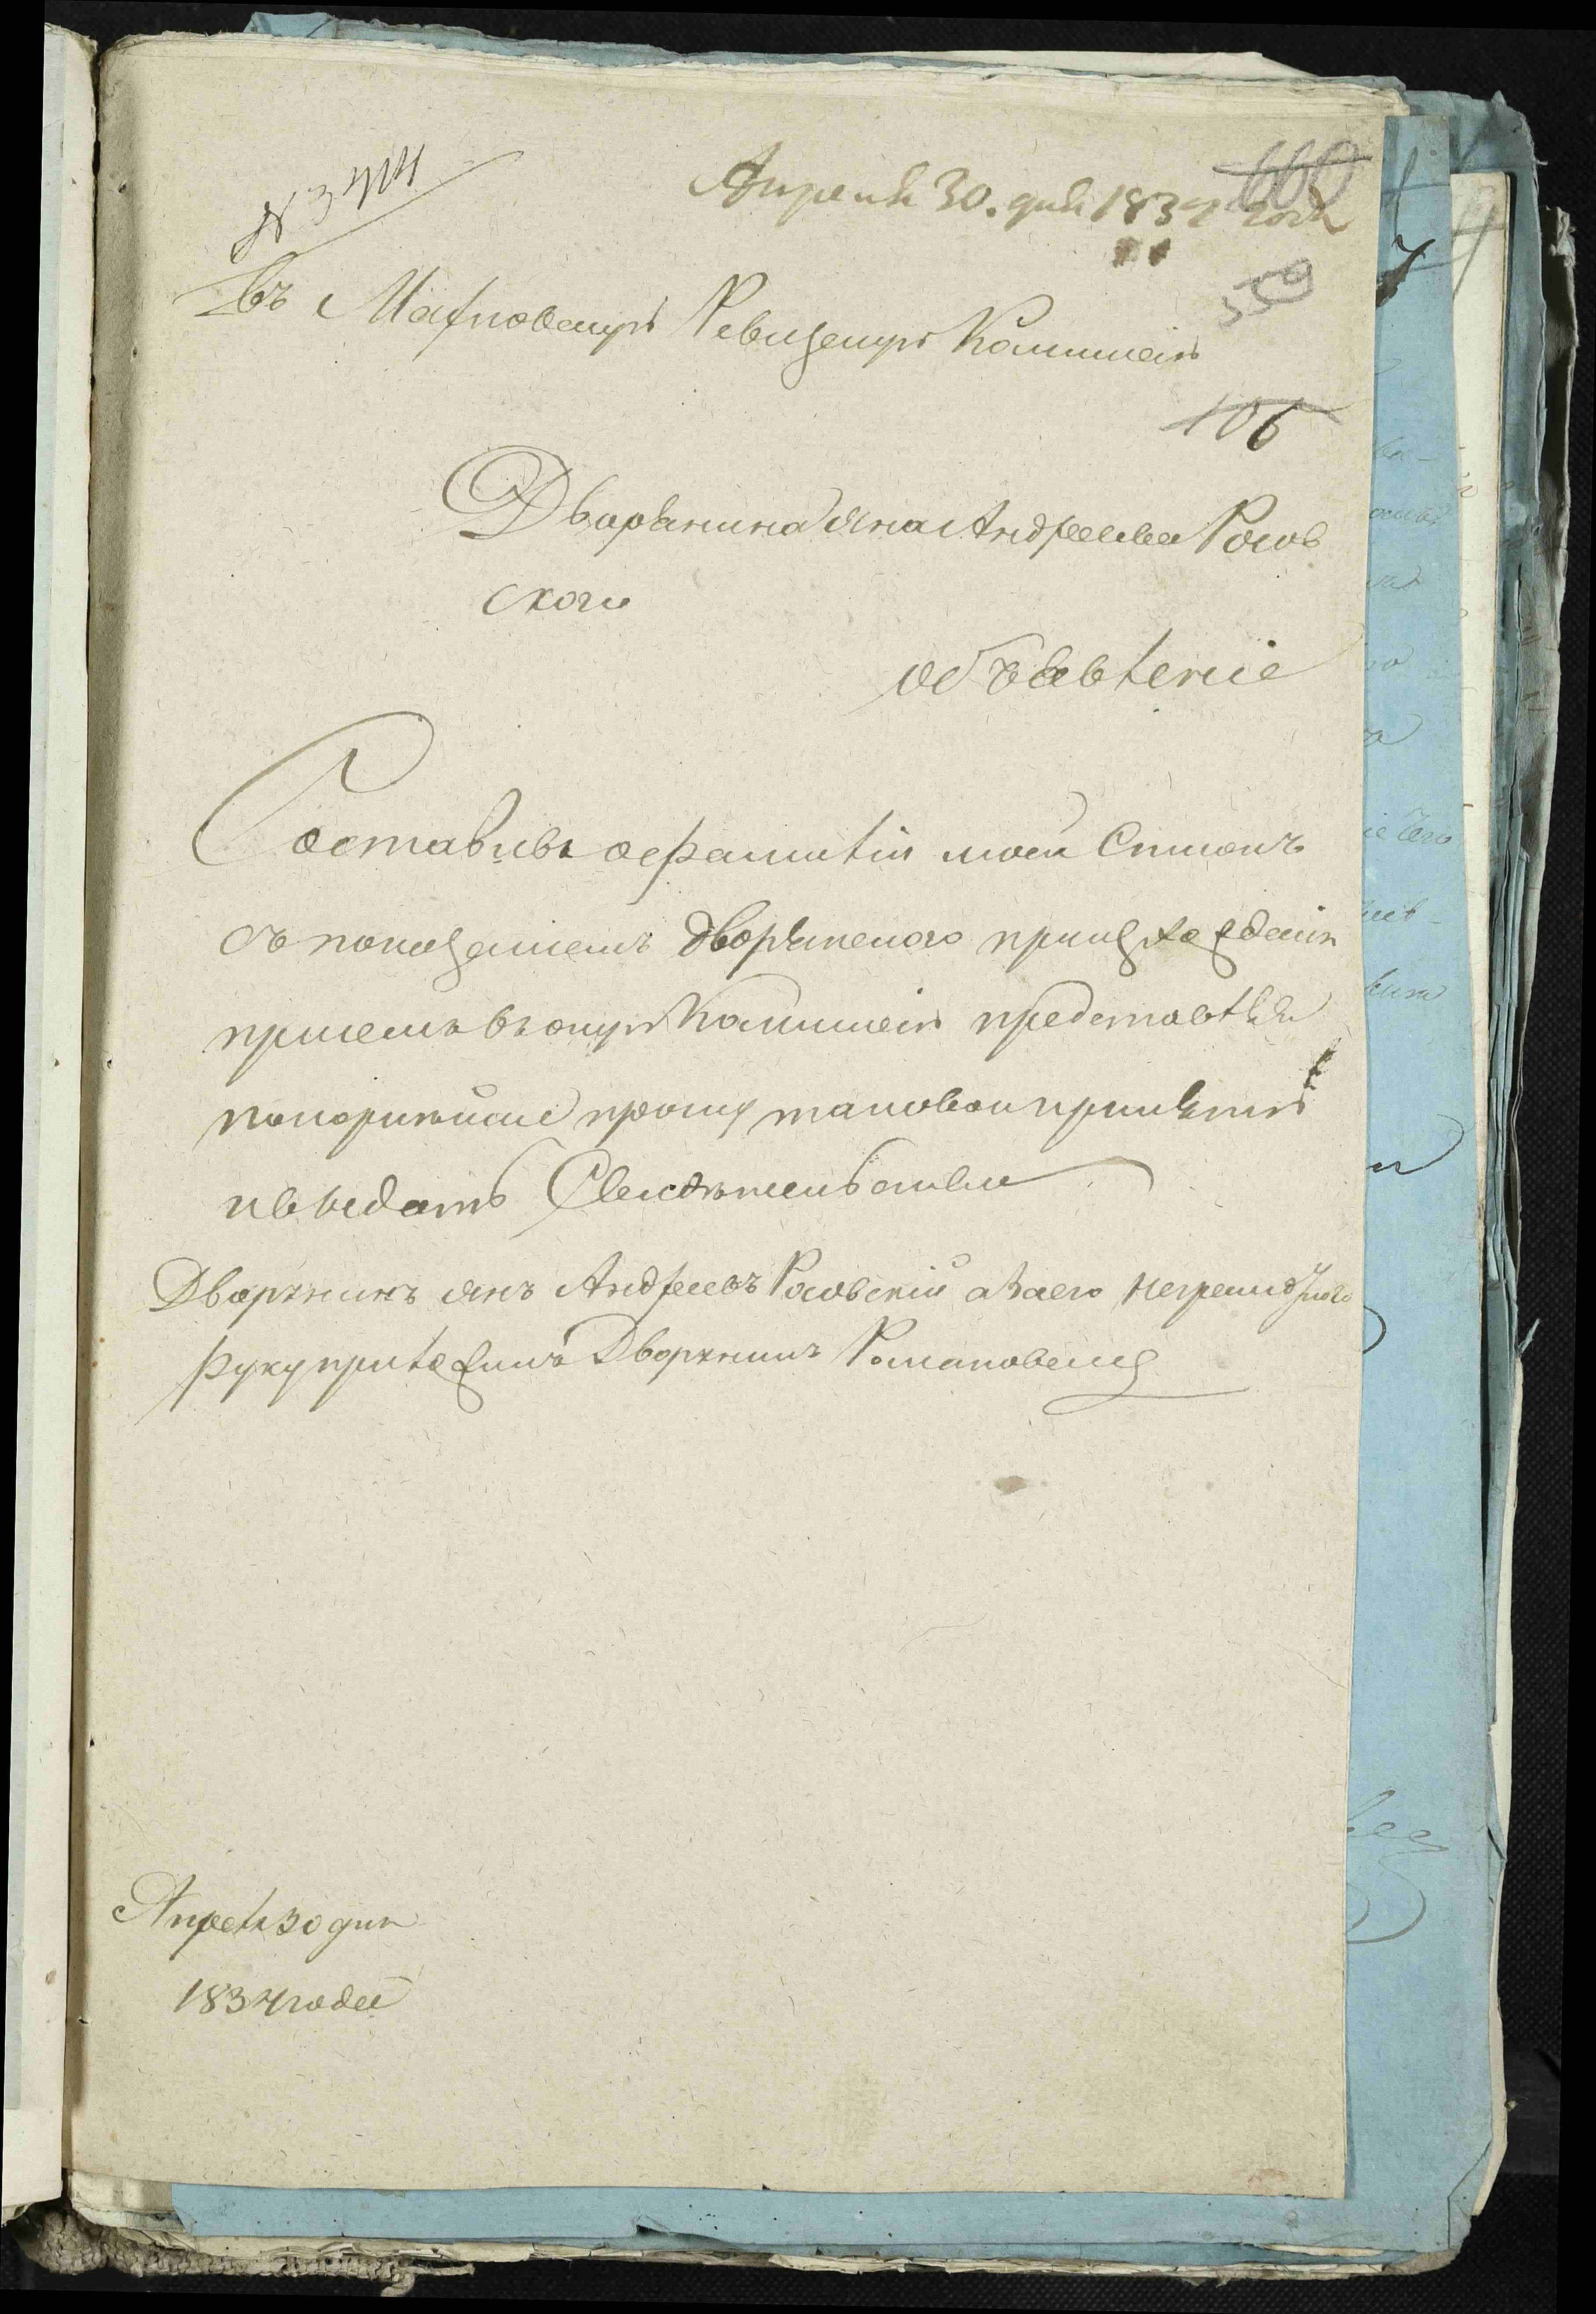 Апреля 30. дня 1834 года
660
559
Въ Ревизскую Коммисію
106
Дворянина Яна Андреева Росов
ского
объявленіе
Составивъ о фамиліи моей Списокъ
съ показаніемъ дворянского произхожденія
при семъ въ оную Коммисію представляя
покорнѣйше прошу таковой принять
и выдать Свидѣтельство
Дворянинъ Янъ Андреевъ Росовскій а за его неграмотного
руку приложилъ Дворянинъ
Апреля 30 дня
1834 года